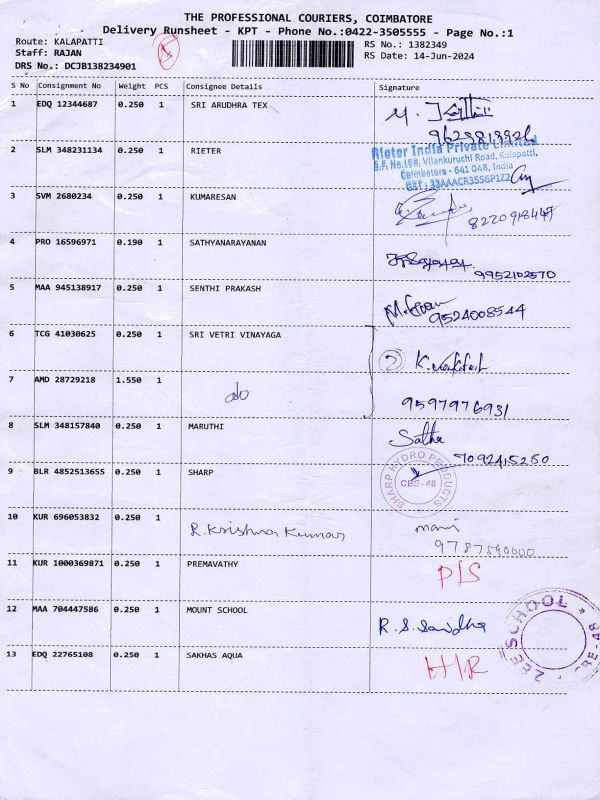 THE PROFESSIONAL COURIERS, COIMBATORE
Delivery Runsheet - KPT - Phone No.:0422-3505555 - Page No.:1
Route: KALAPATTI
Staff: RAJAN
DRS No.: DCJB138234901
RS No.: 1382349
RS Date: 14-Jun-2024
S No Consignment No Weight PCS Consignee Details Signature
1 EDQ 12344687 0.250 1 SRI ARUDHRA TEX
2 SLM 348231134 0.250 1 RIETER
Rieter India Private Limited
S.F. No.168, Vilankuruchi Road, Kalapatti,
Coimbatore - 641 048, India
GST : 33AAACR3556P1Z2
3 SVM 2680234 0.250 1 KUMARESAN
8220918447
4 PRO 16596971 0.190 1 SATHYANARAYANAN
9952102570
5 MAA 945138917 0.250 1 SENTHI PRAKASH
9524008544
6 TCG 41030625 0.250 1 SRI VETRI VINAYAGA
2 K.
7 AMD 28729218 1.550 1 do
9597976931
8 SLM 348157840 0.250 1 MARUTHI Satha
7092415250
9 BLR 4852513655 0.250 1 SHARP
SHARP HYDRO PRODUCTS
CBE-48
10 KUR 696053832 0.250 1 R. Krishna Kumar mani
11 KUR 1000369871 0.250 1 PREMAVATHY P/S
12 MAA 704447586 0.250 1 MOUNT SCHOOL R.S.
ZEE SCHOOL * CBE-48
13 EDQ 22765108 0.250 1 SAKHAS AQUA H/R